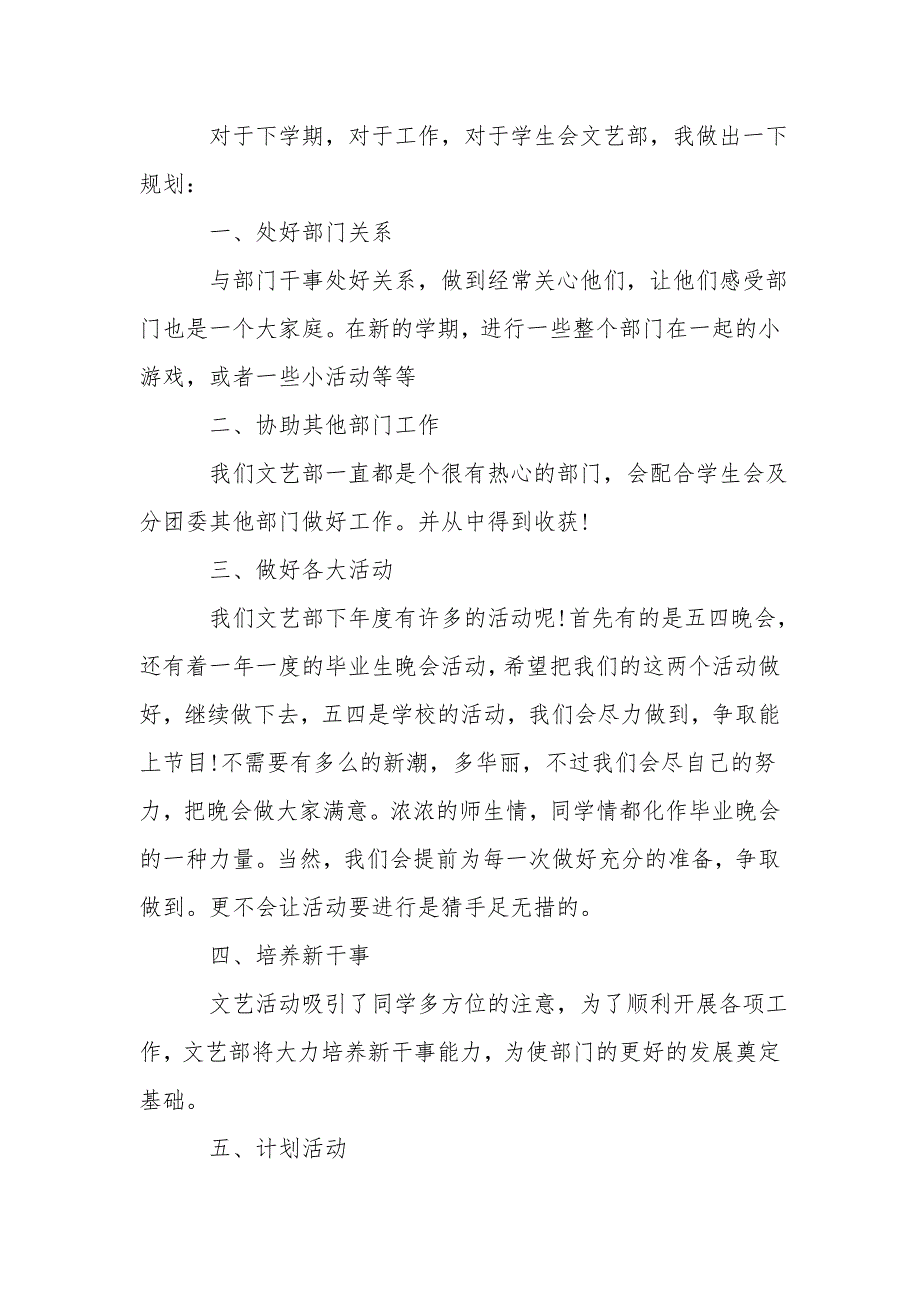 对于下学期，对于工作，对于学生会文艺部，我做出一下
规划：
一、处好部门关系
与部门干事处好关系，做到经常关心他们，让他们感受部
门也是一个大家庭。在新的学期，进行一些整个部门在一起的小
游戏，或者一些小活动等等
二、协助其他部门工作
我们文艺部一直都是个很有热心的部门，会配合学生会及
分团委其他部门做好工作。并从中得到收获!
三、做好各大活动
我们文艺部下年度有许多的活动呢!首先有的是五四晚会，
还有着一年一度的毕业生晚会活动，希望把我们的这两个活动做
好，继续做下去，五四是学校的活动，我们会尽力做到，争取能
上节目!不需要有多么的新潮，多华丽，不过我们会尽自己的努
力，把晚会做大家满意。浓浓的师生情，同学情都化作毕业晚会
的一种力量。当然，我们会提前为每一次做好充分的准备，争取
做到。更不会让活动要进行是猜手足无措的。
四、培养新干事
文艺活动吸引了同学多方位的注意，为了顺利开展各项工
作，文艺部将大力培养新干事能力，为使部门的更好的发展奠定
基础。
五、计划活动